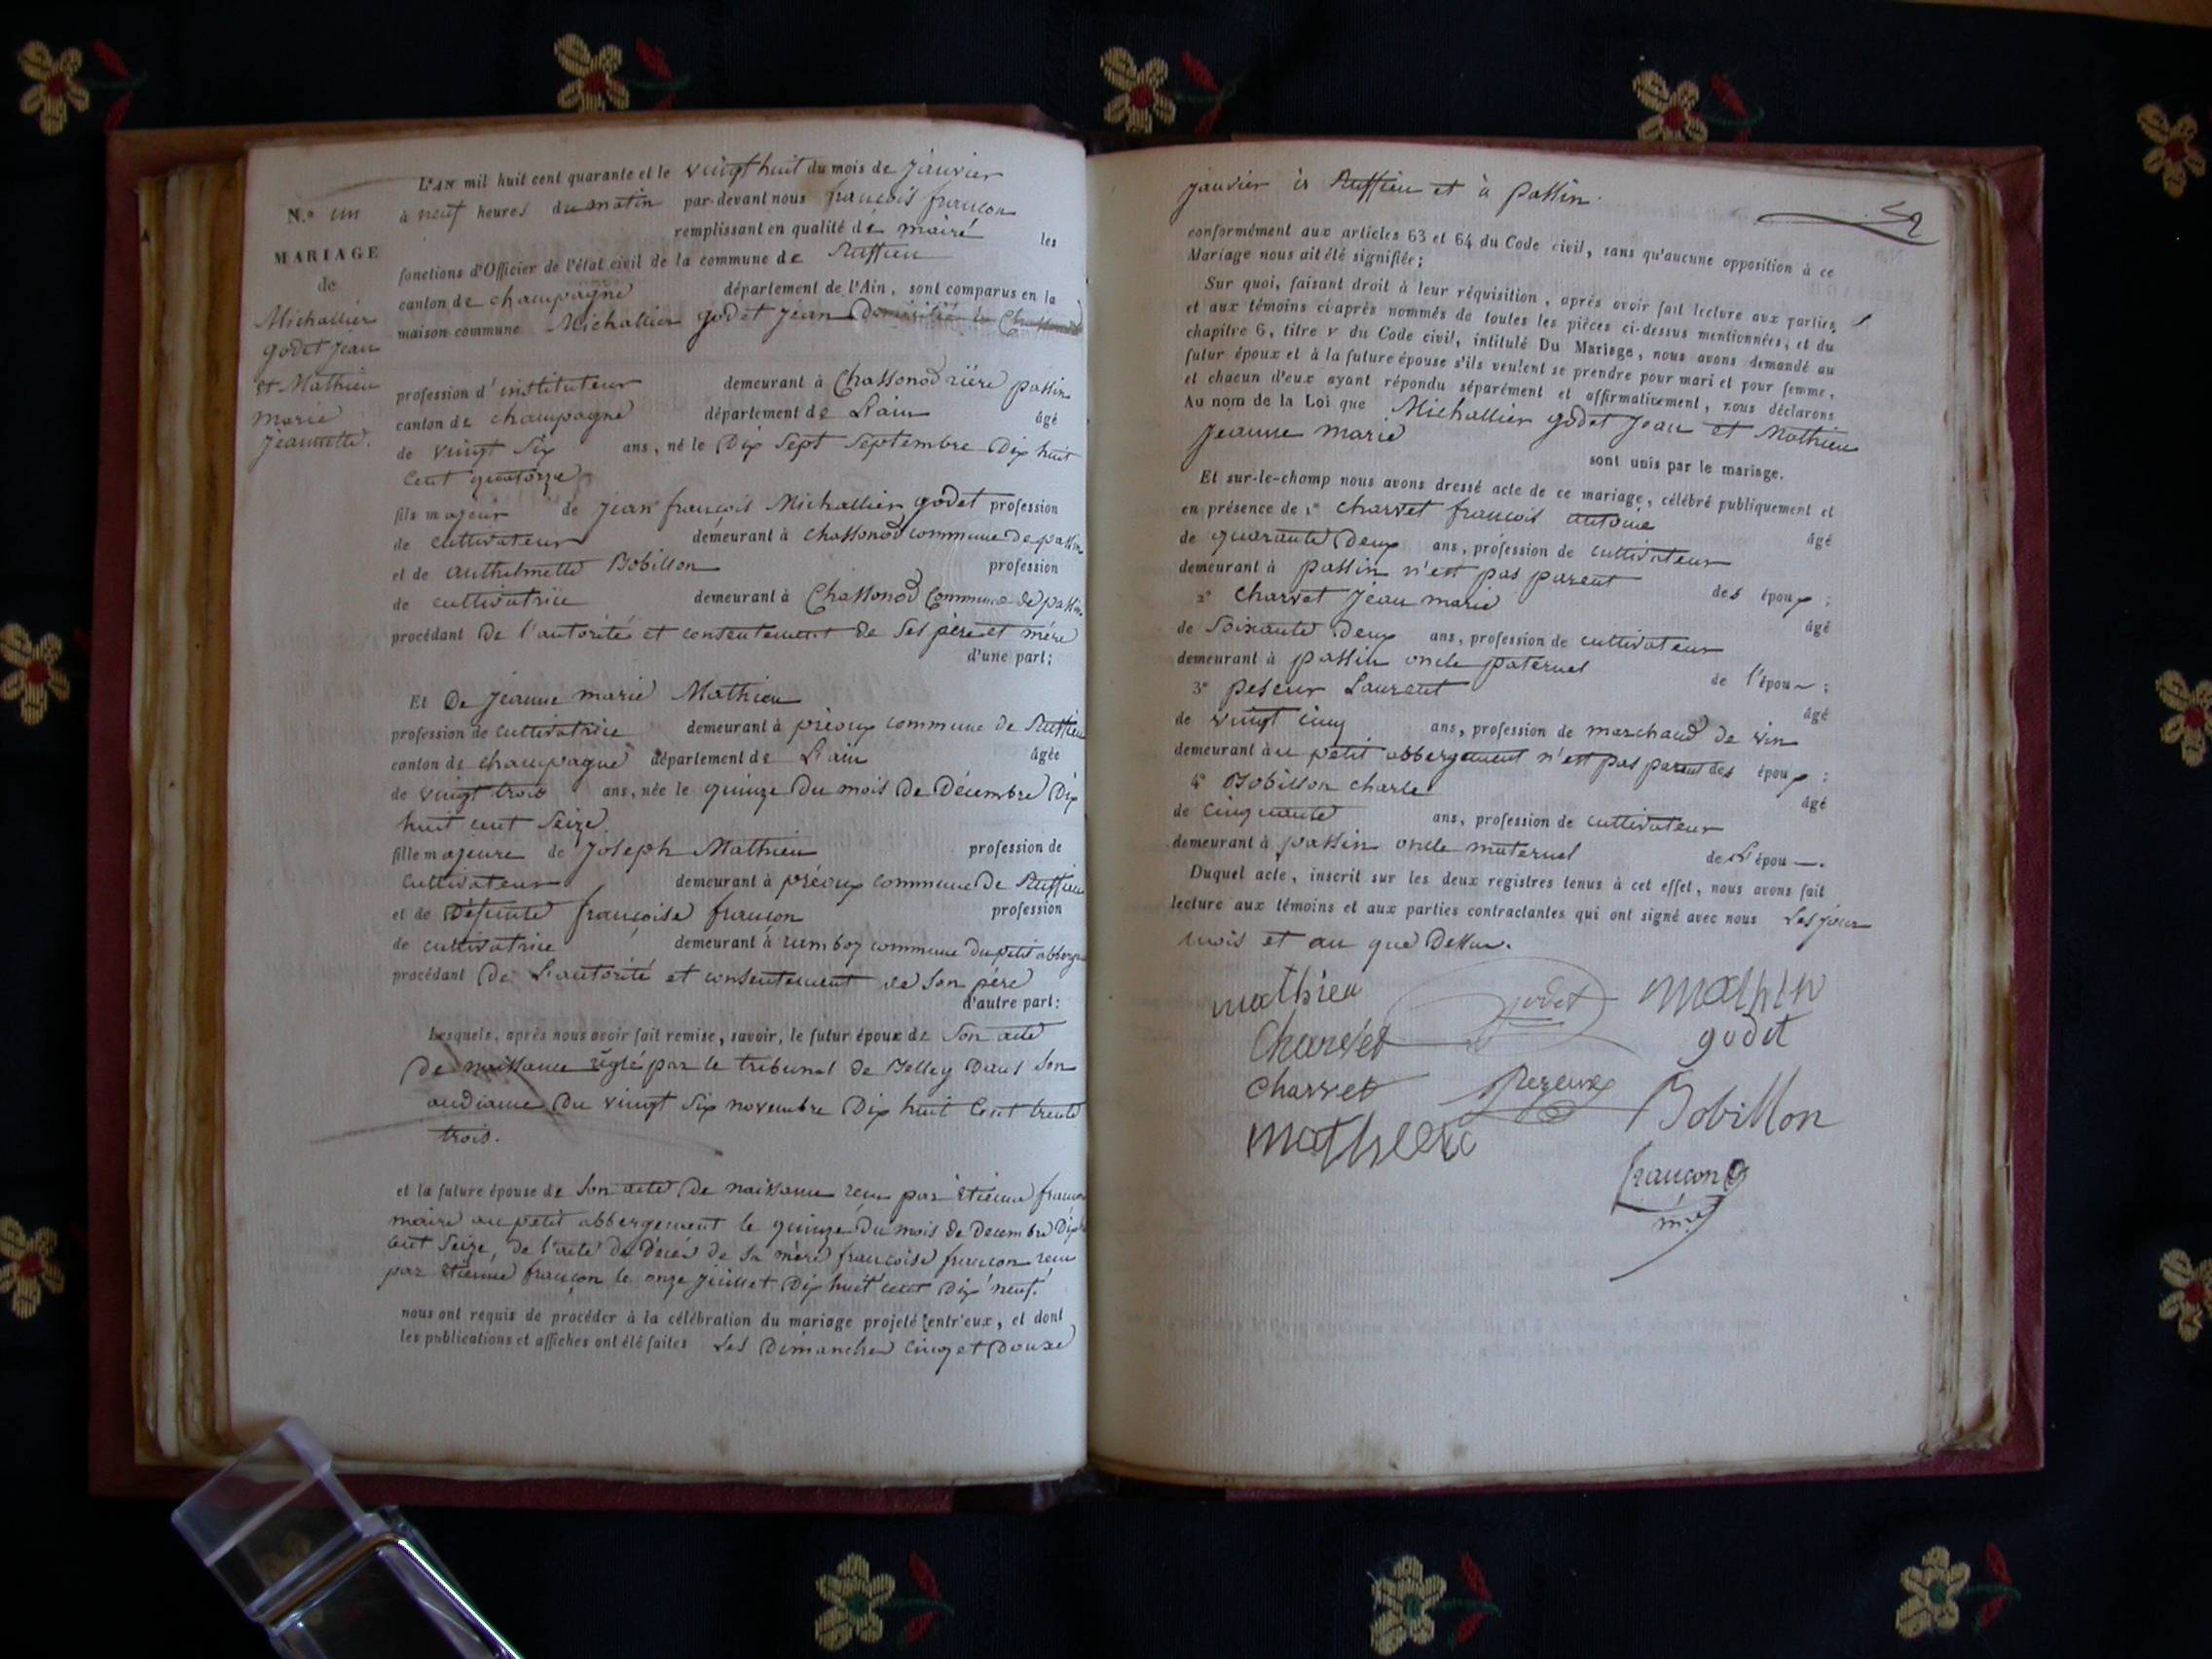 L'AN mil huit cent quarante et le vingt huit du mois de janvier
N.° un
à neuf heures du matin par-devant nous françois françon
remplissant en qualité de maire les
MARIAGE
fonctions d'Officier de l'état civil de la commune de Ruffieu
de
canton de champagne département de l'Ain, sont comparus en la
maison commune Michallier godet jean Domicilié à Chassonod
Michallier
godet jean
et Mathieu
marie
jeannette.
profession d'instituteur demeurant à Chassonod rière passin
canton de champagne département de L'ain âgé
de vingt six ans, né le Dix Sept Septembre Dix huit
Cent quatorze
fils majeur de jean françois Michallier godet profession
de cultivateur demeurant à chassonod commune de passin
et de anthelmette Bobillon profession
de cultivatrice demeurant à Chassonod Commune de passin
procédant De l'autorité et consentement de Ses père et mère
d'une part;
Et De jeanne marie Mathieu
profession de cultivatrice demeurant à préoux commune de Ruffieu
canton de champagne département de L'ain âgée
de vingt trois ans, née le quinze Du mois De Décembre Dix
huit cent Seize
fille majeure de Joseph Mathieu profession de
cultivateur demeurant à préoux commune De Ruffieu
et de Défunte françoise françon profession
de cultivatrice demeurant à commune du petit abberge
procédant De L'autorité et consentement de Son père
d'autre part:
Lesquels, après nous avoir fait remise, savoir, le futur époux de Son acte
De naissance réglé par le tribunal de Belley Dans Son
audiance Du vingt Six novembre Dix huit Cent trente
trois.
et la future épouse de Son acte De naissance reçu par étienne françon
maire au petit abbergement le quinze Du mois de Decembre Dix h
cent Seize, de l'acte de décés de sa mère françoise françon reçu
par étienne françon le onze juillet Dix huit cent Dix neuf.
nous ont requis de procéder à la célébration du mariage projeté entr'eux, et dont
les publications et affiches ont été faites Les Dimanches Cinq et Douze
janvier à Ruffieu et à passin.
conformément aux articles 63 et 64 du Code civil, sans qu'aucune opposition à ce
Mariage nous ait été signifiée;
Sur quoi, faisant droit à leur réquisition, après avoir fait lecture aux parties
et aux témoins ci-après nommés de toutes les pièces ci-dessus mentionnées, et du
chapitre 6, titre V du Code civil, intitulé Du Mariage, nous avons demandé au
futur époux et à la future épouse s'ils veulent se prendre pour mari et pour femme,
et chacun d'eux ayant répondu séparément et affirmativement, nous déclarons
Au nom de la Loi que Michallier godet Jean et Mathieu
Jeanne marie
sont unis par le mariage.
Et sur-le-champ nous avons dressé acte de ce mariage, célébré publiquement et
en présence de 1° charvet françois antoine âgé
de quarante Deux ans, profession de cultivateur
demeurant à passin n'est pas parent des époux;
2° charvet Jean marie âgé
de Soixante Deux ans, profession de cultivateur
demeurant à passin oncle paternel de l'épou;
3° peseur Laurent âgé
de vingt cinq ans, profession de marchand de vin
demeurant au petit abbergement n'est pas parent des époux;
4° Bobillon charle âgé
de cinquante ans, profession de cultivateur
demeurant à passin oncle maternel de L'épou.
Duquel acte, inscrit sur les deux registres tenus à cet effet, nous avons fait
lecture aux témoins et aux parties contractantes qui ont signé avec nous Les jour
mois et an que Dessus.
mathieu godet
Charvet godet
charvet Bobillon
françon
m.re